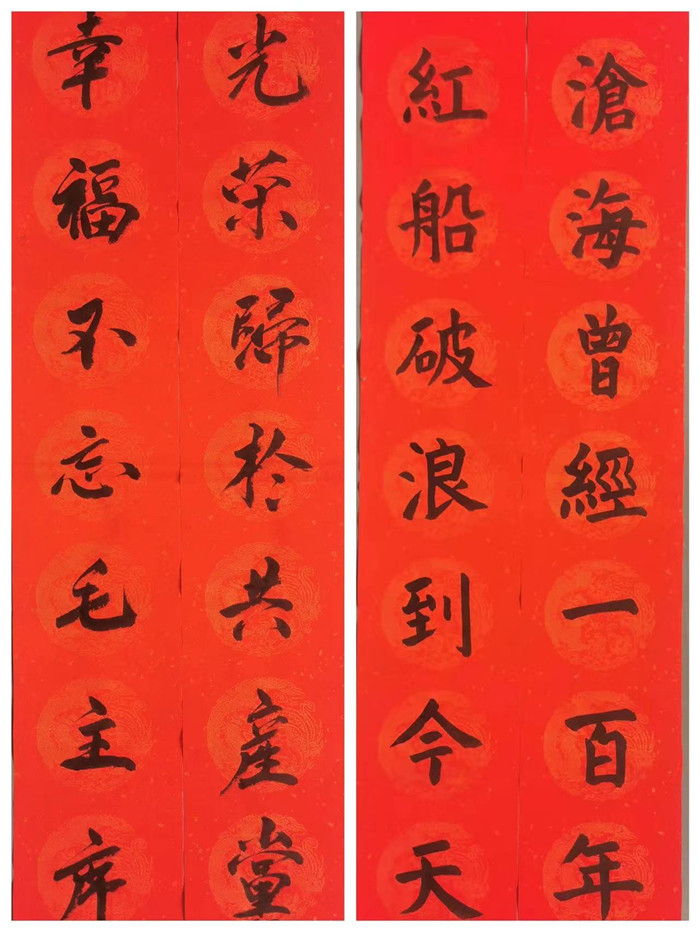 滄海曾經一百年
紅船破浪到今天
光荣歸於共産黨
幸福不忘毛主席